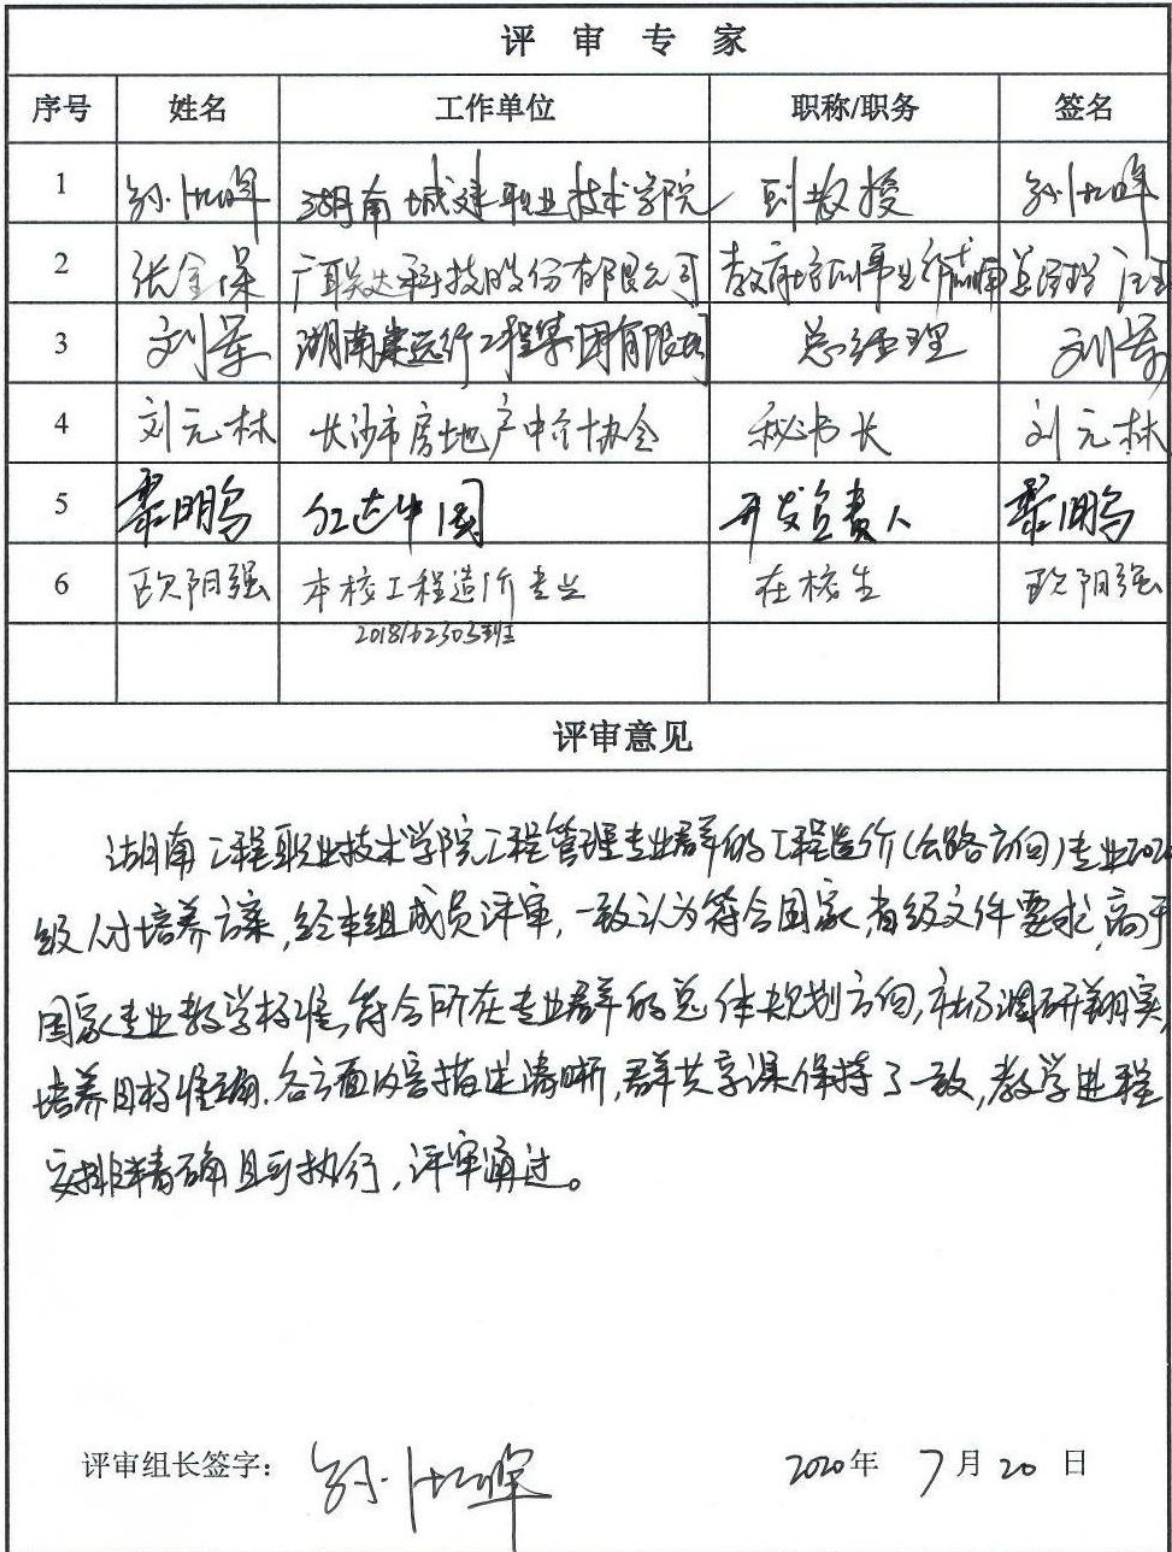 评 审 专 家
序号 姓名 工作单位 职称/职务 签名
1 湖南城建职业技术学院 副教授
2 张金保 广联达科技股份有限公司
3 刘军 总经理 刘军
4 刘元林 长沙市房地产中介协会 秘书长 刘元林
5 鹏 中国 开发负责人 鹏
6 欧阳强 本校工程造价专业 在校生 欧阳强
班
评审意见
湖南工程职业技术学院工程管理专业群的工程造价(公路方向)专业202
级人才培养方案,经本组成员评审,一致认为符合国家,省级文件要求,高于
国家专业教学标准,符合所在专业群的总体规划方向,市场调研翔实,
培养目标准确.各方面内容描述清晰,群共享课保持了一致,教学进程
安排精确且可执行,评审通过。
评审组长签字:
2020年 7月20日